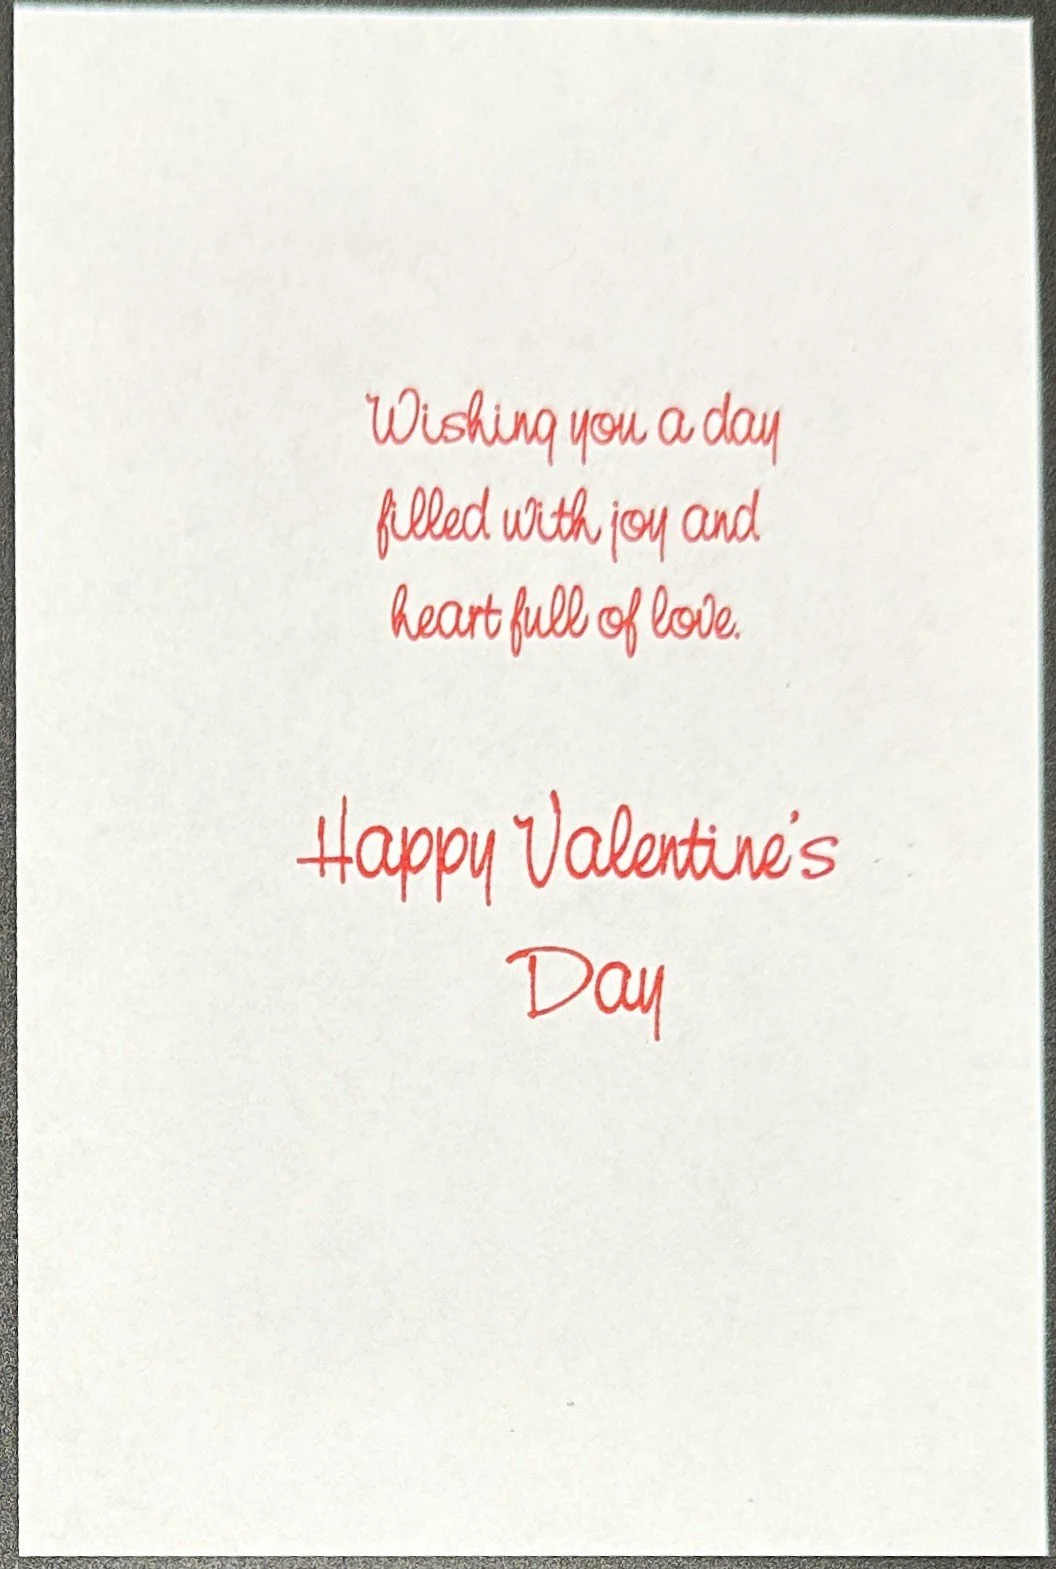 Wishing you a day
filled with joy and
heart full of love.
Happy Valentine's
Day